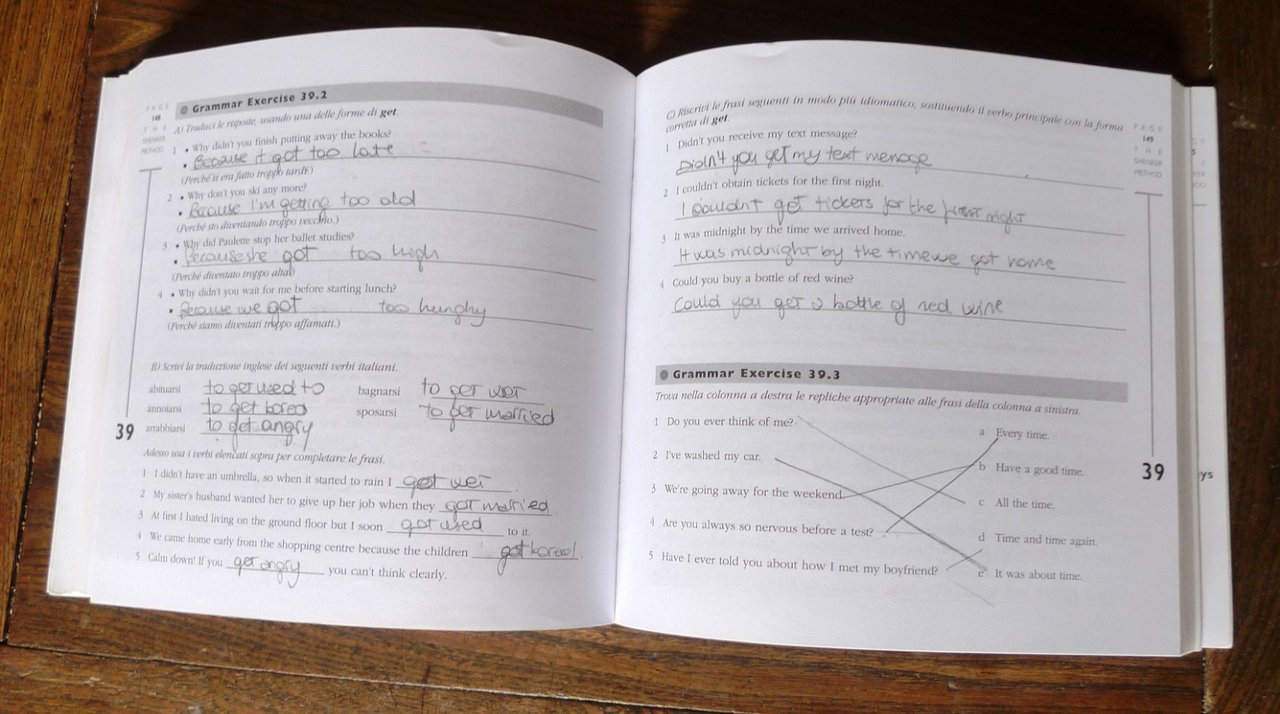 PAGE
148
THE
SHENKER
METHOD
Grammar Exercise 39.2
A) Traduci le risposte, usando una delle forme di get.
1 • Why didn't you finish putting away the books?
• Because it got too late
(Perché si era fatto troppo tardi.)
2 • Why don't you ski any more?
• Because I'm getting too old
(Perché sto diventando troppo vecchio.)
3 • Why did Paulette stop her ballet studies?
• Because she got too high
(Perché diventato troppo alta)
4 • Why didn't you wait for me before starting lunch?
• Because we got too hunghy
(Perché siamo diventati troppo affamati.)
B) Scrivi la traduzione inglese dei seguenti verbi italiani.
abituarsi to get used to bagnarsi to get wet
annoiarsi to get bored sposarsi to get married
arrabbiarsi to get angry
39
Adesso usa i verbi elencati sopra per completare le frasi.
1 I didn't have an umbrella, so when it started to rain I got wet.
2 My sister's husband wanted her to give up her job when they got married.
3 At first I hated living on the ground floor but I soon got used to it.
4 We came home early from the shopping centre because the children got bored.
5 Calm down! If you get angry you can't think clearly.
C) Riscrivi le frasi seguenti in modo più idiomatico, sostituendo il verbo principale con la forma
corretta di get.
PAGE
149
THE
SHENKER
METHOD
1 Didn't you receive my text message?
Didn't you get my text message
2 I couldn't obtain tickets for the first night.
I couldn't get tickets for the first night
3 It was midnight by the time we arrived home.
It was midnight by the time we got home
4 Could you buy a bottle of red wine?
Could you get a bottle of red wine
Grammar Exercise 39.3
Trova nella colonna a destra le repliche appropriate alle frasi della colonna a sinistra.
1 Do you ever think of me? a Every time.
2 I've washed my car. b Have a good time.
3 We're going away for the weekend. c All the time.
4 Are you always so nervous before a test? d Time and time again.
5 Have I ever told you about how I met my boyfriend? e It was about time.
39
ys